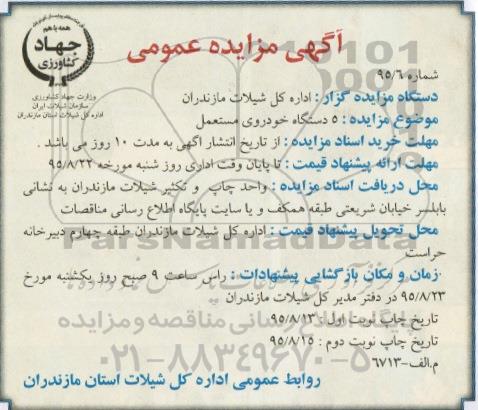 همه با هم
جهاد
کشاورزی
وزارت جهاد کشاورزی
سازمان شیلات ایران
اداره کل شیلات استان مازندران
آگهی مزایده عمومی
شماره ۹۵/۶
دستگاه مزایده گزار : اداره کل شیلات مازندران
موضوع مزایده : ۵ دستگاه خودروی مستعمل
مهلت خرید اسناد مزایده : از تاریخ انتشار اگهی به مدت ۱۰ روز می باشد .
مهلت ارائه پیشنهاد قیمت : تا پایان وقت اداری روز شنبه مورخه ۹۵/۸/۲۲
محل دریافت اسناد مزایده : واحد چاپ و تکثیر شیلات مازندران به نشانی
بابلسر خیابان شریعتی طبقه همکف و یا سایت پایگاه اطلاع رسانی مناقصات
محل تحویل پیشنهاد قیمت : اداره کل شیلات مازندران طبقه چهارم دبیرخانه
حراست
زمان و مکان بازگشایی پیشنهادات : راس ساعت ۹ صبح روز یکشنبه مورخ
۹۵/۸/۲۳ در دفتر مدیر کل شیلات مازندران
تاریخ چاپ نوبت اول : ۹۵/۸/۱۳
تاریخ چاپ نوبت دوم : ۹۵/۸/۱۵
م.الف-۶۷۱۳
روابط عمومی اداره کل شیلات استان مازندران
ParsNamadData
پایگاه اطلاع رسانی مناقصه و مزایده
۰۲۱-۸۸۳۴۹۶۷۰-۵